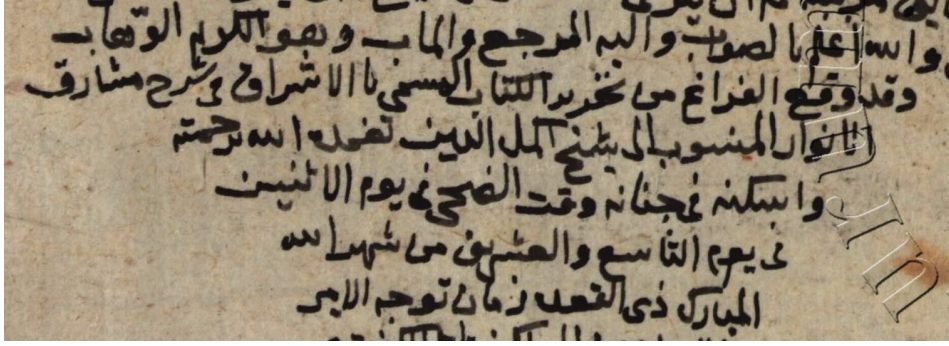 والله اعلم بالصواب واليه المرجع والماب وهو الكريم الوهاب
وقد وقع الفراغ من تحرير الكتاب المسمى بالاشراق فى شرح مشارق
الانوار المنسوب الى شيخ اكمل الدين تغمده الله برحمته
واسكنه فى جنانه وقت الضحى فى يوم الاثنين
فى يوم التاسع والعشرين من شهر الله
المبارك ذى القعده زمان توجه الامير